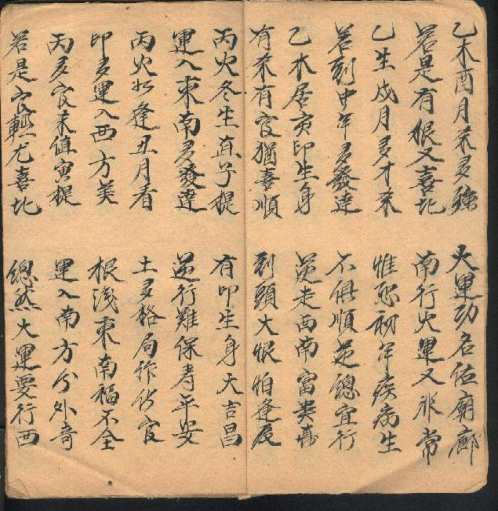 乙木酉月未多強 大運功名位廟廊
若是有根又喜北 南行火運又非常
乙生戌月多才来 惟恐初年疾病生
若到中年多發達 不俱順逆總宜行
乙木居亥印生身 逆走西南富貴真
有未有官猶喜順 到頭大恨怕逢辰
丙火冬生直子提 有印生身大吉昌
運入東南多發達 逆行難保寿平安
丙火如逢丑月看 土多格局作伤官
印多運入西方美 根浅東南福不全
丙多官未值寅提 運入南方分外奇
若是官輕尤喜北 總然大運要行西